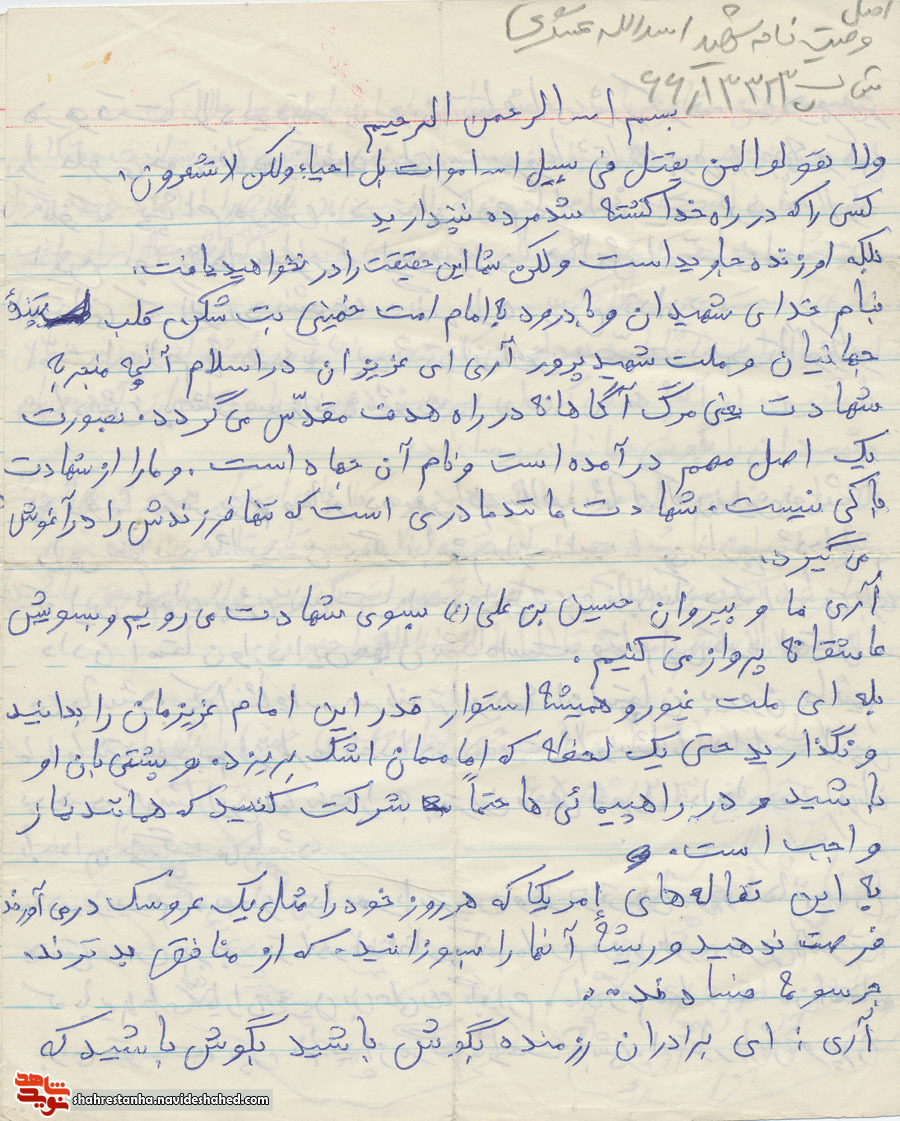 اصل
وصیت نامه شهید اسدالله
ش پ ۶۶/۱۳۳۲۳
بسم اله الرحمن الرحیم
ولا تقو لوا لمن یقتل فی سبیل اله اموات بل احیاء ولکن لا تشعرون.
کسی را که در راه خدا کشته شد مرده نپندارید
بلکه او زنده جاوید است ولکن شما این حقیقت را در نخواهید یافت.
بنام خدای شهیدان و با درود به امام امت خمینی بت شکن، قلب تپندهٔ
جهانیان و ملت شهید پرور آری ای عزیزان در اسلام آنچه منجر به
شهادت یعنی مرگ آگاهانه در راه هدف مقدّس می گردد. بصورت
یک اصل مهم در آمده است و نام آن جهاد است. و مارا از شهادت
باکی نیست. شهادت مانند مادری است که تنها فرزندش را در آغوش
می گیرد.
آری ما و پیروان حسین بن علی (ع) بسوی شهادت می رویم و بسویش
عاشقانه پرواز می کنیم.
بله ای ملت غیور و همیشه استوار قدر این امام عزیزمان را بدانید
و نگذارید حتی یک لحظه که امامان اشک بریزد. و پشتی بان او
باشید و در راهپیمائی ها حتماً شرکت کنید که همانند نماز
واجب است.
به این تفاله های امریکا که هر روز خود را مثل یک عروسک در می آورند
فرصت ندهید و ریشهٔ آنها را بسوزانید. که او منافق بد ترند.
آری: ای برادران رزمنده بگوش باشید بگوش باشید که
شاهد
نوید
shahrestanha.navideshahed.com